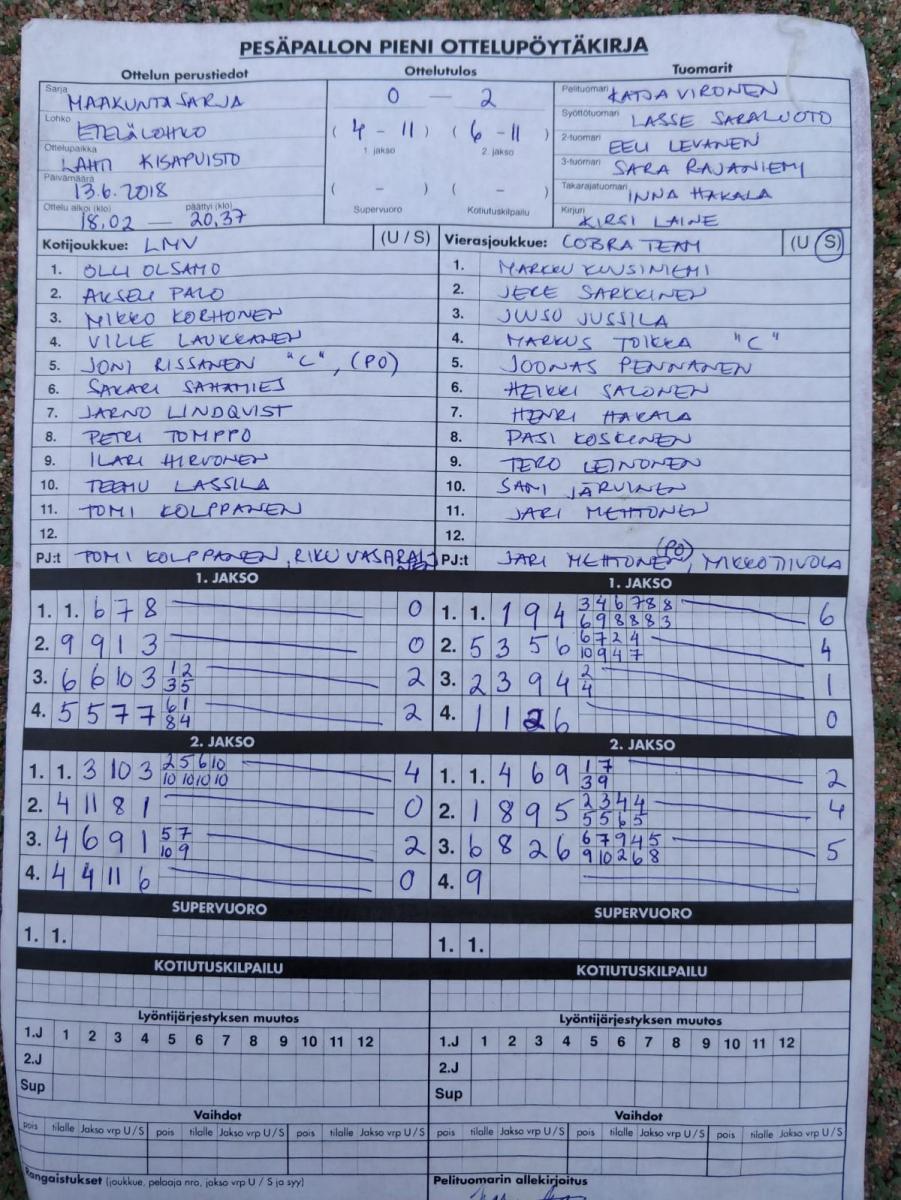 PESÄPALLON PIENI OTTELUPÖYTÄKIRJA
Ottelun perustiedot
Sarja MAAKUNTASARJA
Lohko ETELÄLOHKO
Ottelupaikka LAHTI KISAPUISTO
Päivämäärä 13.6.2018
Ottelu alkoi (klo) 18.02 — päättyi (klo) 20,37
Ottelutulos
0 — 2
( 4 - 11 ) ( 6 - 11 )
1. jakso 2. jakso
( - ) ( - )
Supervuoro Kotiutuskilpailu
Tuomarit
Pelituomari KATJA VIRONEN
Syöttötuomari LASSE SARALUOTO
2-tuomari EELI LEVANEN
3-tuomari SARA RAJANIEMI
Takarajatuomari INNA HAKALA
Kirjuri KIRSI LAINE
Kotijoukkue: LMV (U / S)
1. OLLI OLSAMO
2. AKSELI PALO
3. MIKKO KORHONEN
4. VILLE LAUKKANEN
5. JONI RISSANEN "C", (PO)
6. SAKARI SAHAMIES
7. JARNO LINDQVIST
8. PETRI TOMPPO
9. ILARI HIRVONEN
10. TEEMU LASSILA
11. TOMI KOLPPANEN
12.
PJ:t TOMI KOLPPANEN, RIKU
Vierasjoukkue: COBRA TEAM (U / S)
1. MARKKU KUUSINIEMI
2. JERE SARKKINEN
3. JUUSO JUSSILA
4. MARKUS TOIKKA "C"
5. JOONAS PENNANEN
6. HEIKKI SALONEN
7. HENRI HAKALA
8. PASI KOSKINEN
9. TERO LEINONEN
10. SAMI JÄRVINEN
11. JARI MEHTONEN
12.
PJ:t JARI MEHTONEN (PO), MIKKO TIVOLA
1. JAKSO
1. 1. 6 7 8 0
2. 9 9 1 3 0
3. 6 6 10 3 1 2 2
3 5
4. 5 5 7 7 6 1 2
8 4
1. JAKSO
1. 1. 1 9 4 3 4 6 7 8 8 6
6 9 8 8 8 3
2. 5 3 5 6 6 7 2 4 4
10 9 4 7
3. 2 3 9 4 2 1
4
4. 1 1 2 6 0
2. JAKSO
1. 1. 3 10 3 2 5 6 10 4
10 10 10 10
2. 4 11 8 1 0
3. 4 6 9 1 5 7 2
10 9
4. 4 4 11 6 0
2. JAKSO
1. 1. 4 6 9 1 7 2
3 9
2. 1 8 9 5 2 3 4 4 4
5 5 6 5
3. 6 8 2 6 6 7 9 4 5 5
9 10 2 6 8
4. 9
SUPERVUORO
1. 1.
SUPERVUORO
1. 1.
KOTIUTUSKILPAILU
KOTIUTUSKILPAILU
Lyöntijärjestyksen muutos
1.J 1 2 3 4 5 6 7 8 9 10 11 12
2.J
Sup
Lyöntijärjestyksen muutos
1.J 1 2 3 4 5 6 7 8 9 10 11 12
2.J
Sup
Vaihdot
pois tilalle Jakso vrp U / S pois tilalle Jakso vrp U / S pois tilalle Jakso vrp U / S
Vaihdot
pois tilalle Jakso vrp U / S pois tilalle Jakso vrp U / S pois tilalle Jakso vrp U / S
Rangaistukset (joukkue, pelaaja nro, jakso vrp U / S ja syy)
Pelituomarin allekirjoitus